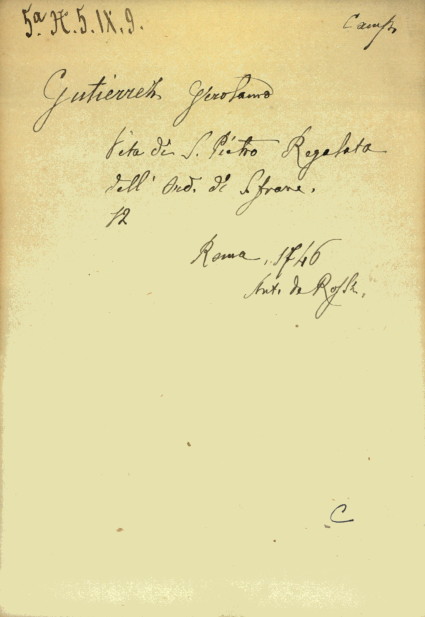 5ª H. 5. IX. 9.
Camp.
Gutierrez Gerolamo
Vita di S. Pietro Regalata
dell' Ord. di S. franc.
12
Roma, 1746
Ant. de Rossi.
C